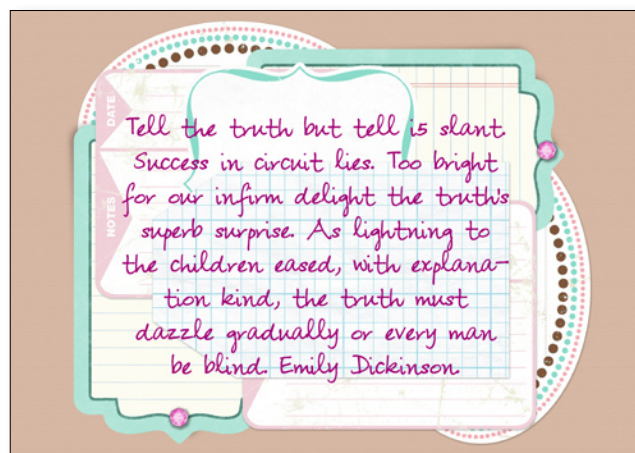 DATE
NOTES
Tell the truth but tell i5 slant.
Success in circuit lies. Too bright
for our infirm delight the truth's
superb surprise. As lightning to
the children eased, with explana-
tion kind, the truth must
dazzle gradually or every man
be blind. Emily Dickinson.